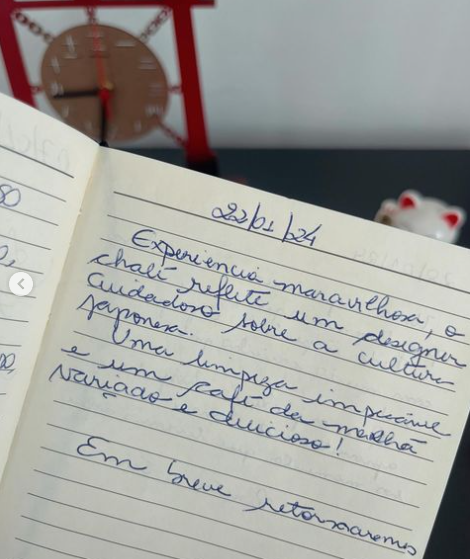 22/01/24
Experiência maravilhosa, o
chalé reflete um designer
cuidadoso sobre a cultura
japonesa.
Uma limpeza impecável
e um café da manhã
variado e delicioso!
Em breve retornaremos